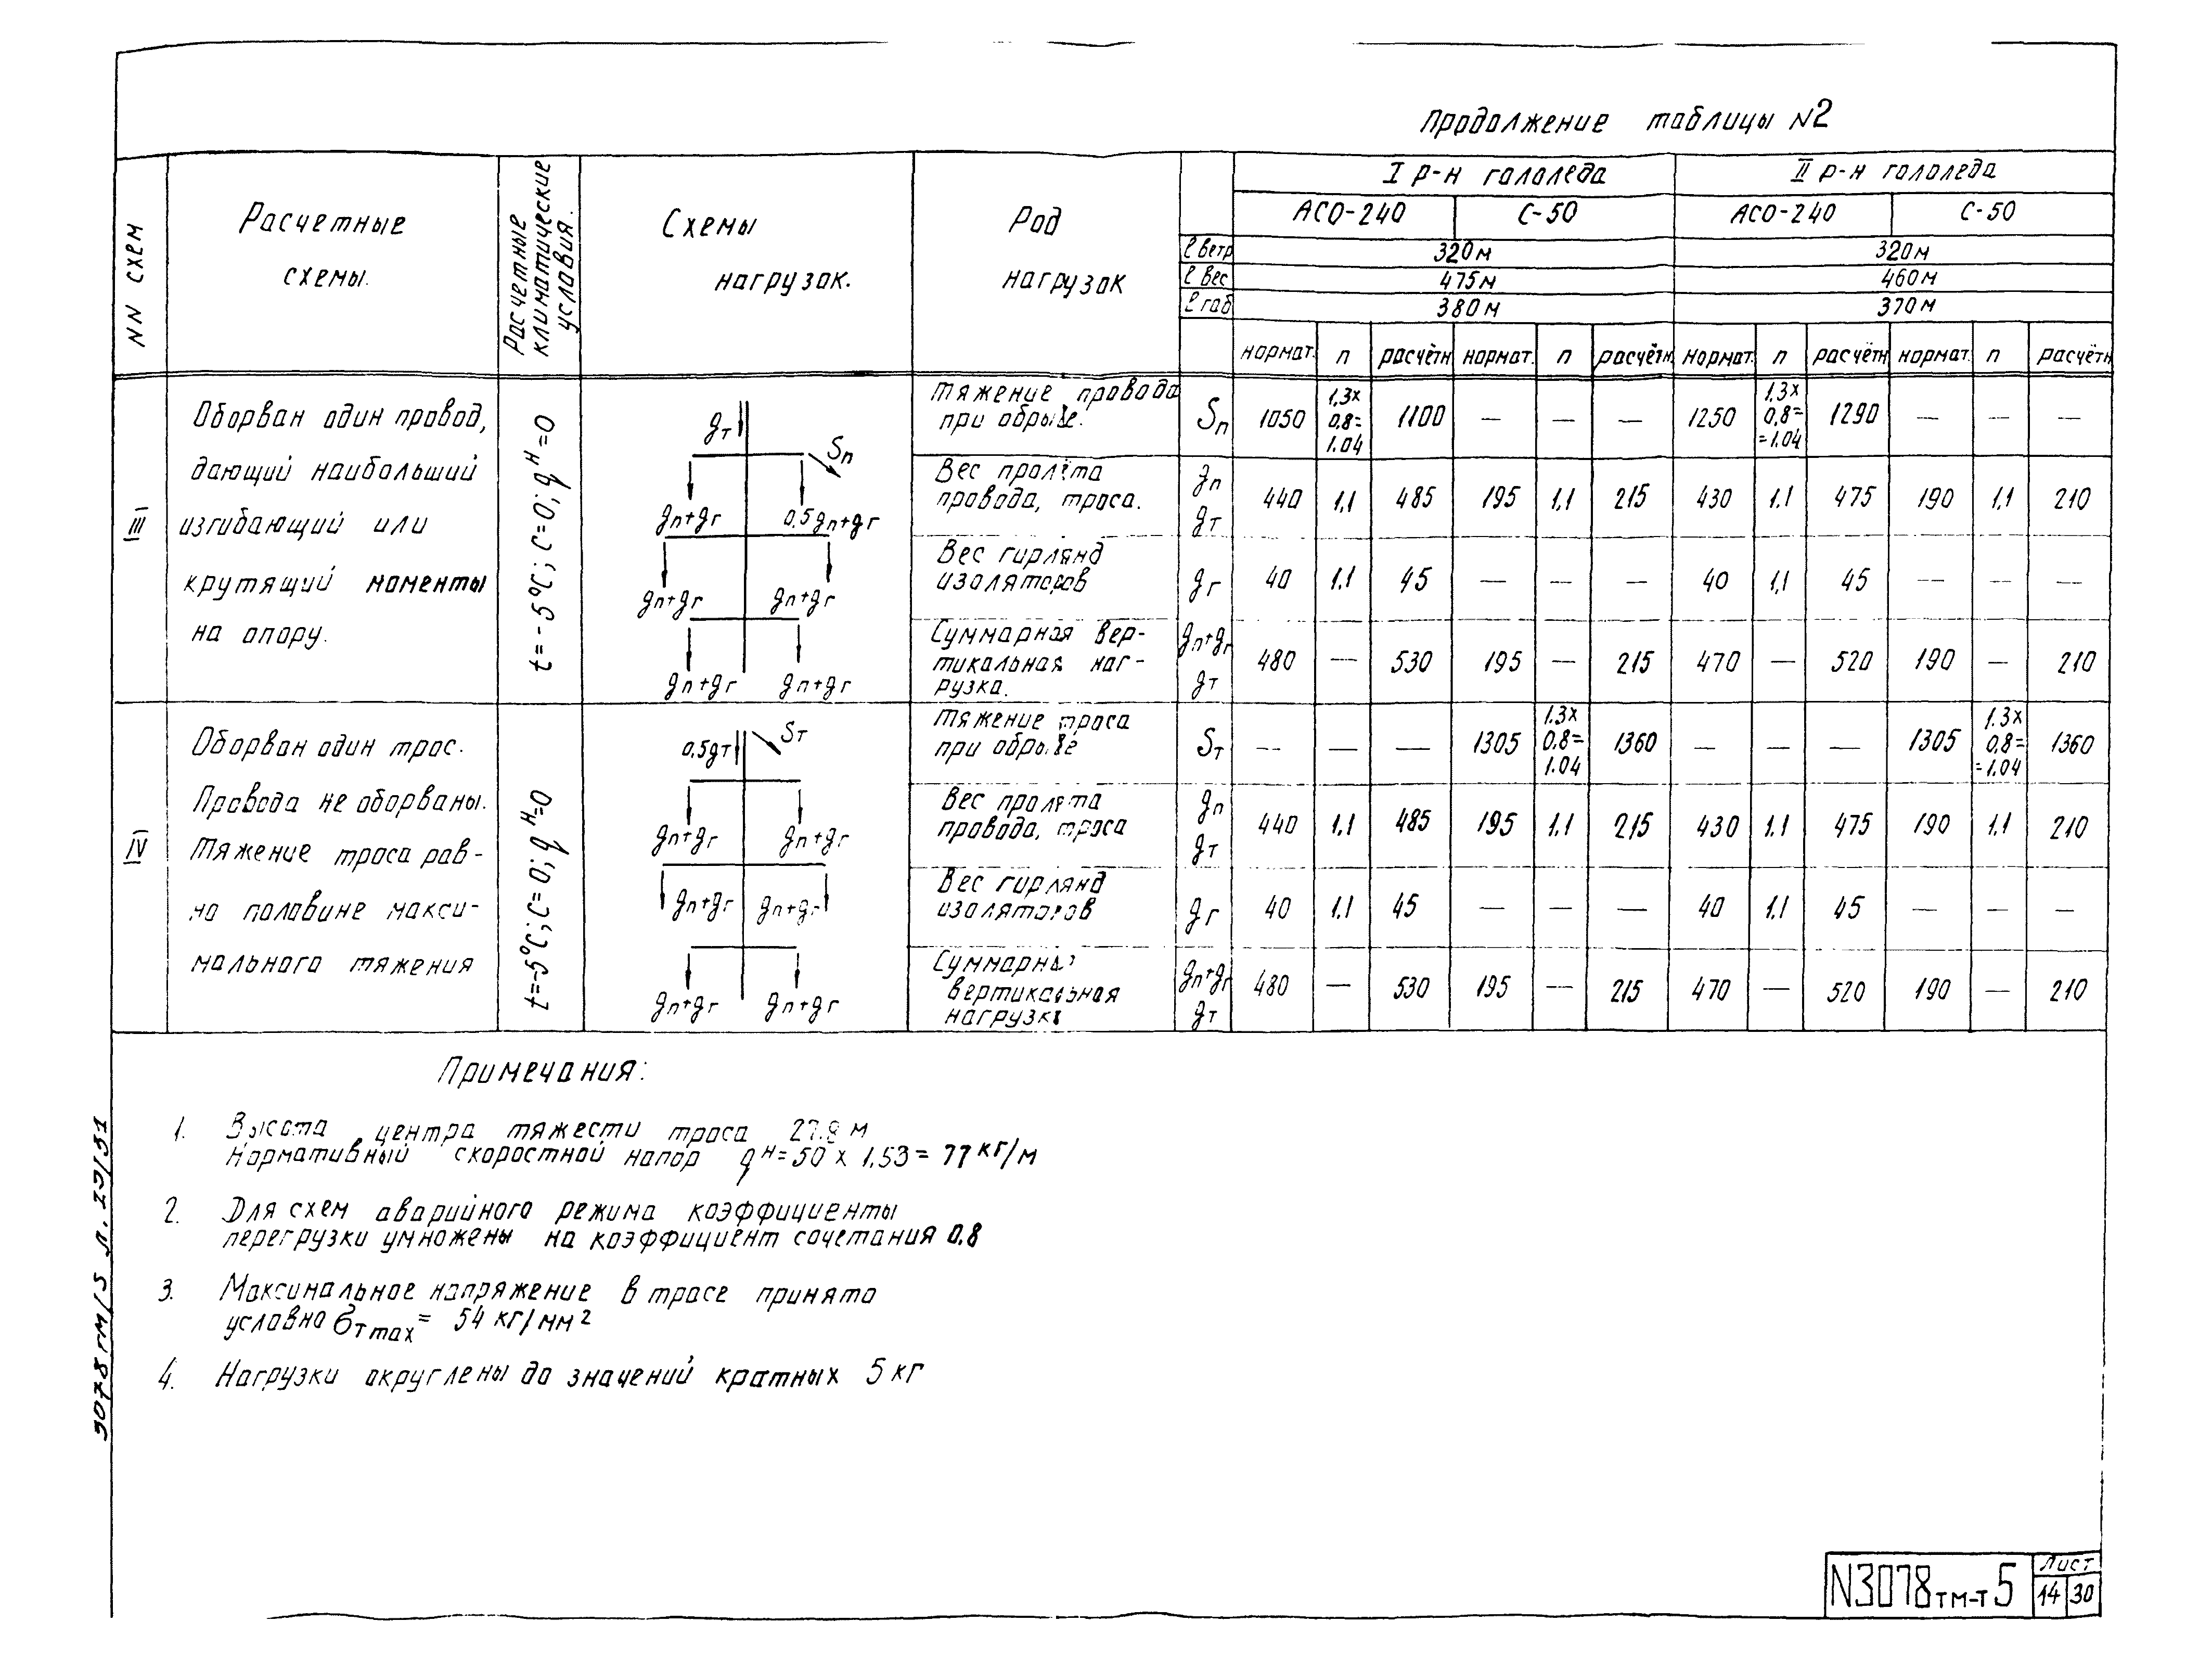 Продолжение таблицы N2
NN схем
Расчетные схемы.
Расчетные климатические условия.
Схемы нагрузок.
Род нагрузок
I р-н гололеда
II р-н гололеда
АСО-240 С-50 АСО-240 С-50
ℓ ветр 320м 320м
ℓ вес 475м 460м
ℓ габ 380м 370м
нормат. n расчётн нормат. n расчётн нормат. n расчётн нормат. n расчётн
III
Оборван один провод,
дающий наибольший
изгибающий или
крутящий моменты
на опору.
t=-5°C; C=0; qᴴ=0
gт Sп
gп+gг 0,5gп+gг
gп+gг gп+gг
gп+gг gп+gг
Тяжение провода при обрыве. Sп 1050 1,3х 0,8= 1.04 1100 — — — 1250 1,3х 0,8= =1.04 1290 — — —
Вес пролёта провода, троса. gп gт 440 1,1 485 195 1,1 215 430 1.1 475 190 1,1 210
Вес гирлянд изоляторов gг 40 1.1 45 — — — 40 1,1 45 — — —
Суммарная вер- тикальная наг- рузка. gп+gг gт 480 — 530 195 — 215 470 — 520 190 — 210
IV
Оборван один трос.
Провода не оборваны.
Тяжение троса рав-
но половине макси-
мального тяжения
t=-5°C; C=0; qᴴ=0
0,5gт Sт
gп+gг gп+gг
gп+gг gп+gг
gп+gг gп+gг
Тяжение троса при обрыве Sт — — — 1305 1.3х 0,8= 1.04 1360 — — — 1305 1.3х 0,8= =1.04 1360
Вес пролёта провода, троса gп gт 440 1.1 485 195 1.1 215 430 1.1 475 190 1.1 210
Вес гирлянд изоляторов gг 40 1.1 45 — — — 40 1.1 45 — — —
Суммарная вертикальная нагрузка gп+gг gт 480 — 530 195 — 215 470 — 520 190 — 210
Примечания:
1. Высота центра тяжести троса 27.8 м
Нормативный скоростной напор qᴴ=50 х 1,53= 77 кг/м
2. Для схем аварийного режима коэффициенты
перегрузки умножены на коэффициент сочетания 0.8
3. Максимальное напряжение в тросе принято
условно σт max= 54 кг/мм²
4. Нагрузки округлены до значений кратных 5 кг
N3078тм-т5
Лист
14 30